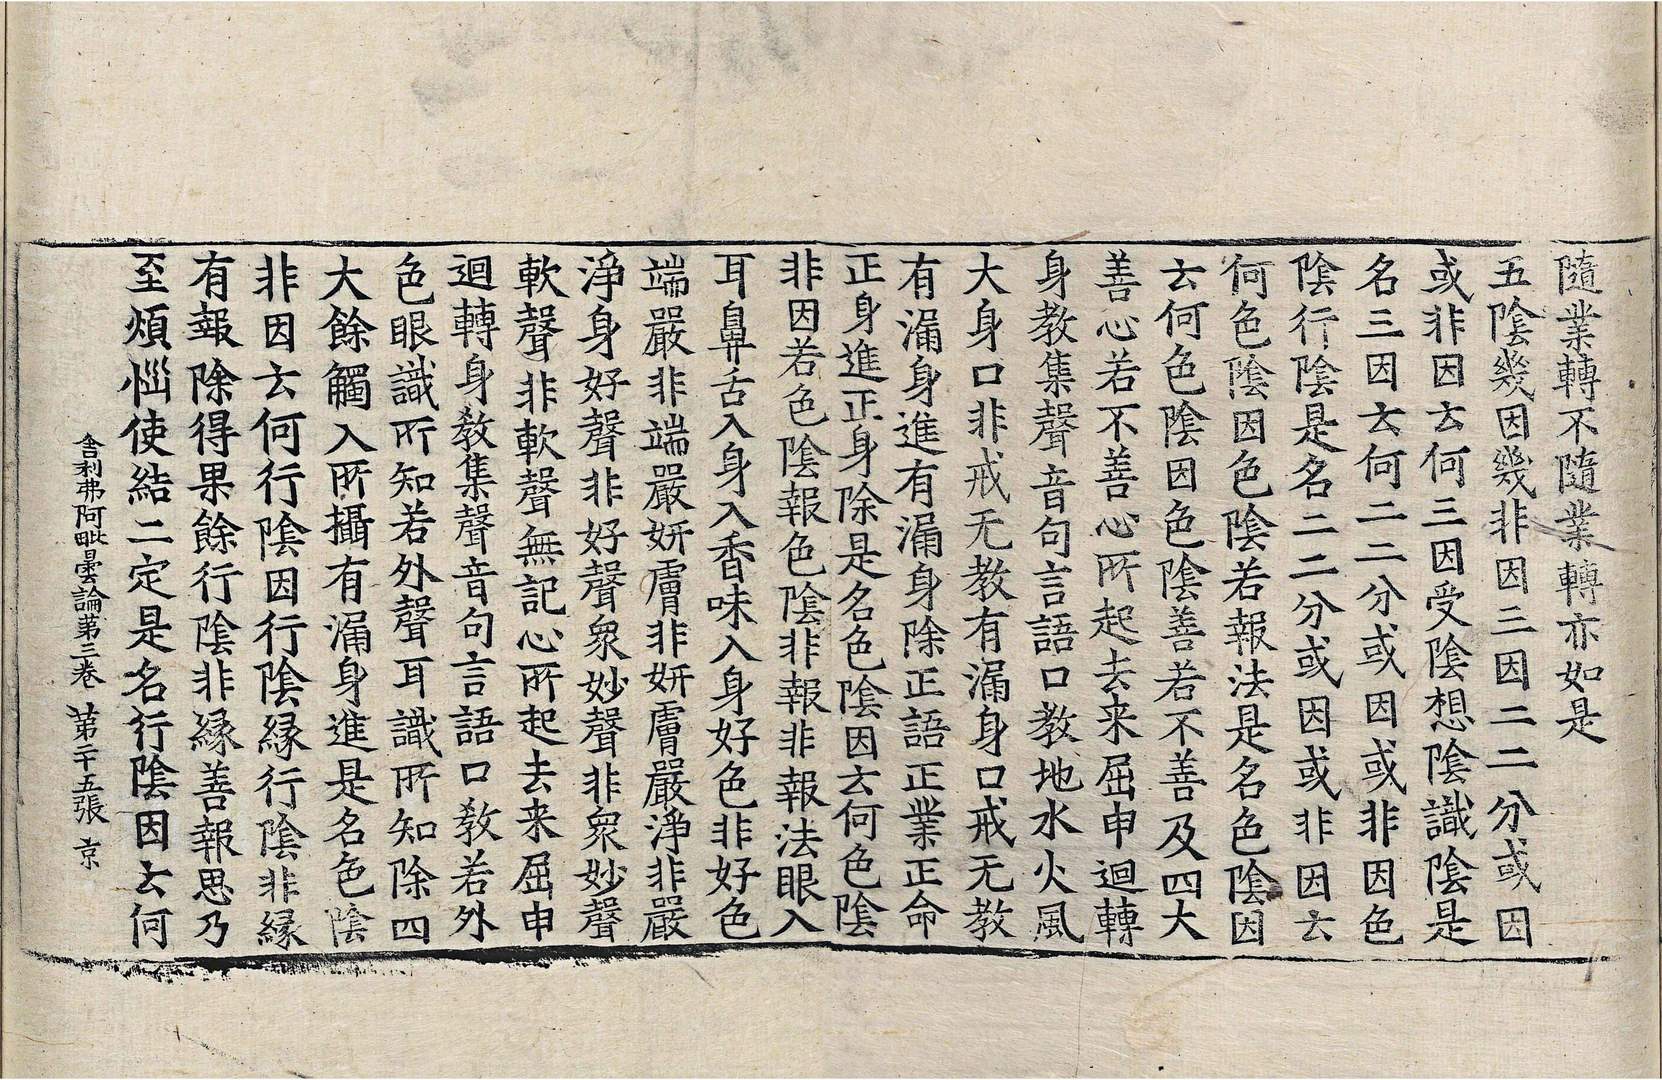 隨業轉不隨業轉亦如是
五陰幾因幾非因三因二二分或因
或非因云何三因受陰想陰識陰是
名三因云何二二分或因或非因色
陰行陰是名二二分或因或非因云
何色陰因色陰若報法是名色陰因
云何色陰因色陰善若不善及四大
善心若不善心所起去来屈申迴轉
身教集聲音句言語口教地水火風
大身口非戒无教有漏身口戒无教
有漏身進有漏身除正語正業正命
正身進正身除是名色陰因云何色陰
非因若色陰報色陰非報非報法眼入
耳鼻舌入身入香味入身好色非好色
端嚴非端嚴妍膚非妍膚嚴淨非嚴
淨身好聲非好聲衆妙聲非衆妙聲
軟聲非軟聲無記心所起去来屈申
迴轉身教集聲音句言語口教若外
色眼識所知若外聲耳識所知除四
大餘觸入所攝有漏身進是名色陰
非因云何行陰因行陰緣行陰非緣
有報除得果餘行陰非緣善報思乃
至煩惱使結二定是名行陰因云何
舎利弗阿毗曇論第三卷 第二十五張 京